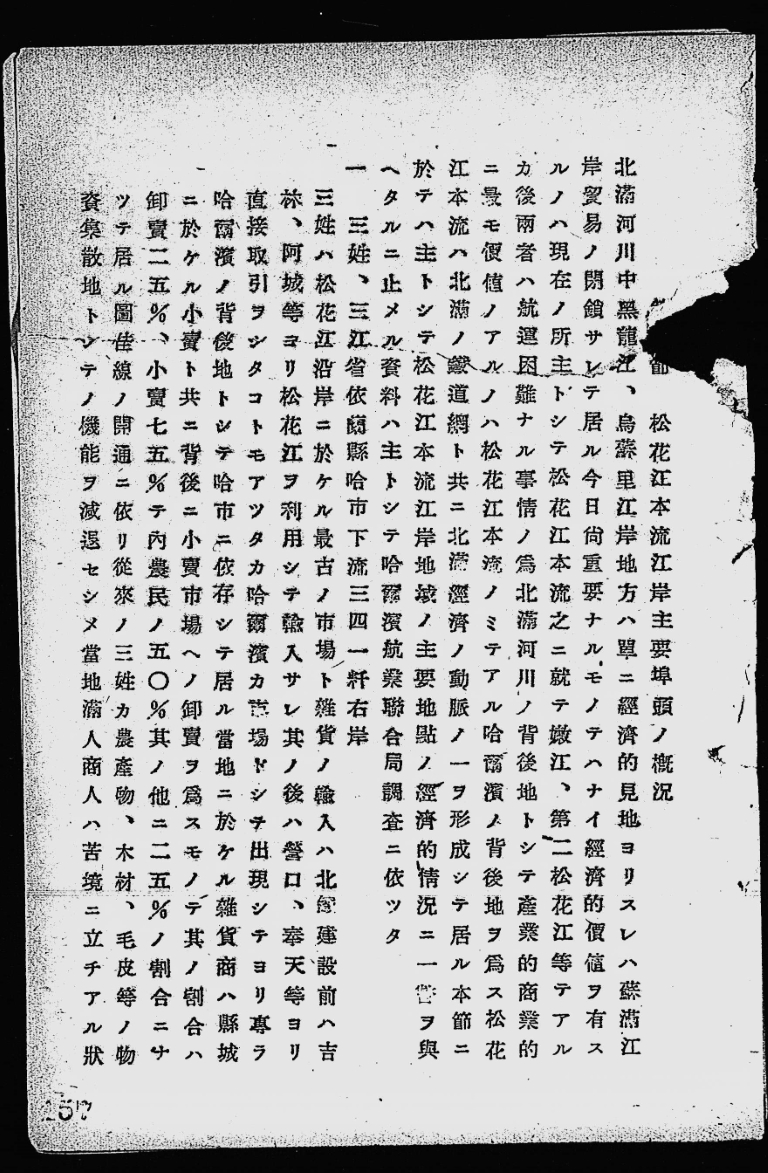 節 松花江本流江岸主要埠頭ノ概況
北滿河川中黑龍江、烏蘇里江岸地方ハ單ニ經濟的見地ヨリスレハ蘇滿江
岸貿易ノ閉鎖サレテ居ル今日尙重要ナルモノテハナイ經濟的價値ヲ有ス
ルノハ現在ノ所主トシテ松花江本流之ニ就テ嫩江、第二松花江等テアル
カ後兩者ハ航運困難ナル事情ノ爲北滿河川ノ背後地トシテ產業的商業的
ニ最モ價値ノアルノハ松花江本流ノミテアル哈爾濱ノ背後地ヲ爲ス松花
江本流ハ北滿ノ鐵道網ト共ニ北滿經濟ノ動脈ノ一ヲ形成シテ居ル本節ニ
於テハ主トシテ松花江本流江岸地域ノ主要地點ノ經濟的情況ニ一瞥ヲ與
ヘタルニ止メル資料ハ主トシテ哈爾濱航業聯合局調査ニ依ツタ
一 三姓、三江省依蘭縣哈市下流三四一粁右岸
三姓ハ松花江沿岸ニ於ケル最古ノ市場ト雜貨ノ輸入ハ北鐵建設前ハ吉
林、阿城等ヨリ松花江ヲ利用シテ輸入サレ其ノ後ハ營口、奉天等ヨリ
直接取引ヲシタコトモアツタカ哈爾濱カ市場トシテ出現シテヨリ專ラ
哈爾濱ノ背後地トシテ哈市ニ依存シテ居ル當地ニ於ケル雜貨商ハ縣城
ニ於ケル小賣ト共ニ背後ニ小賣市場ヘノ卸賣ヲ爲スモノテ其ノ割合ハ
卸賣二五%、小賣七五%テ內農民ノ五〇%其ノ他ニ二五%ノ割合ニナ
ツテ居ル圖佳線ノ開通ニ依リ從來ノ三姓カ農產物、木材、毛皮等ノ物
資集散地トシテノ機能ヲ減退セシメ當地滿人商人ハ苦境ニ立チアル狀
157